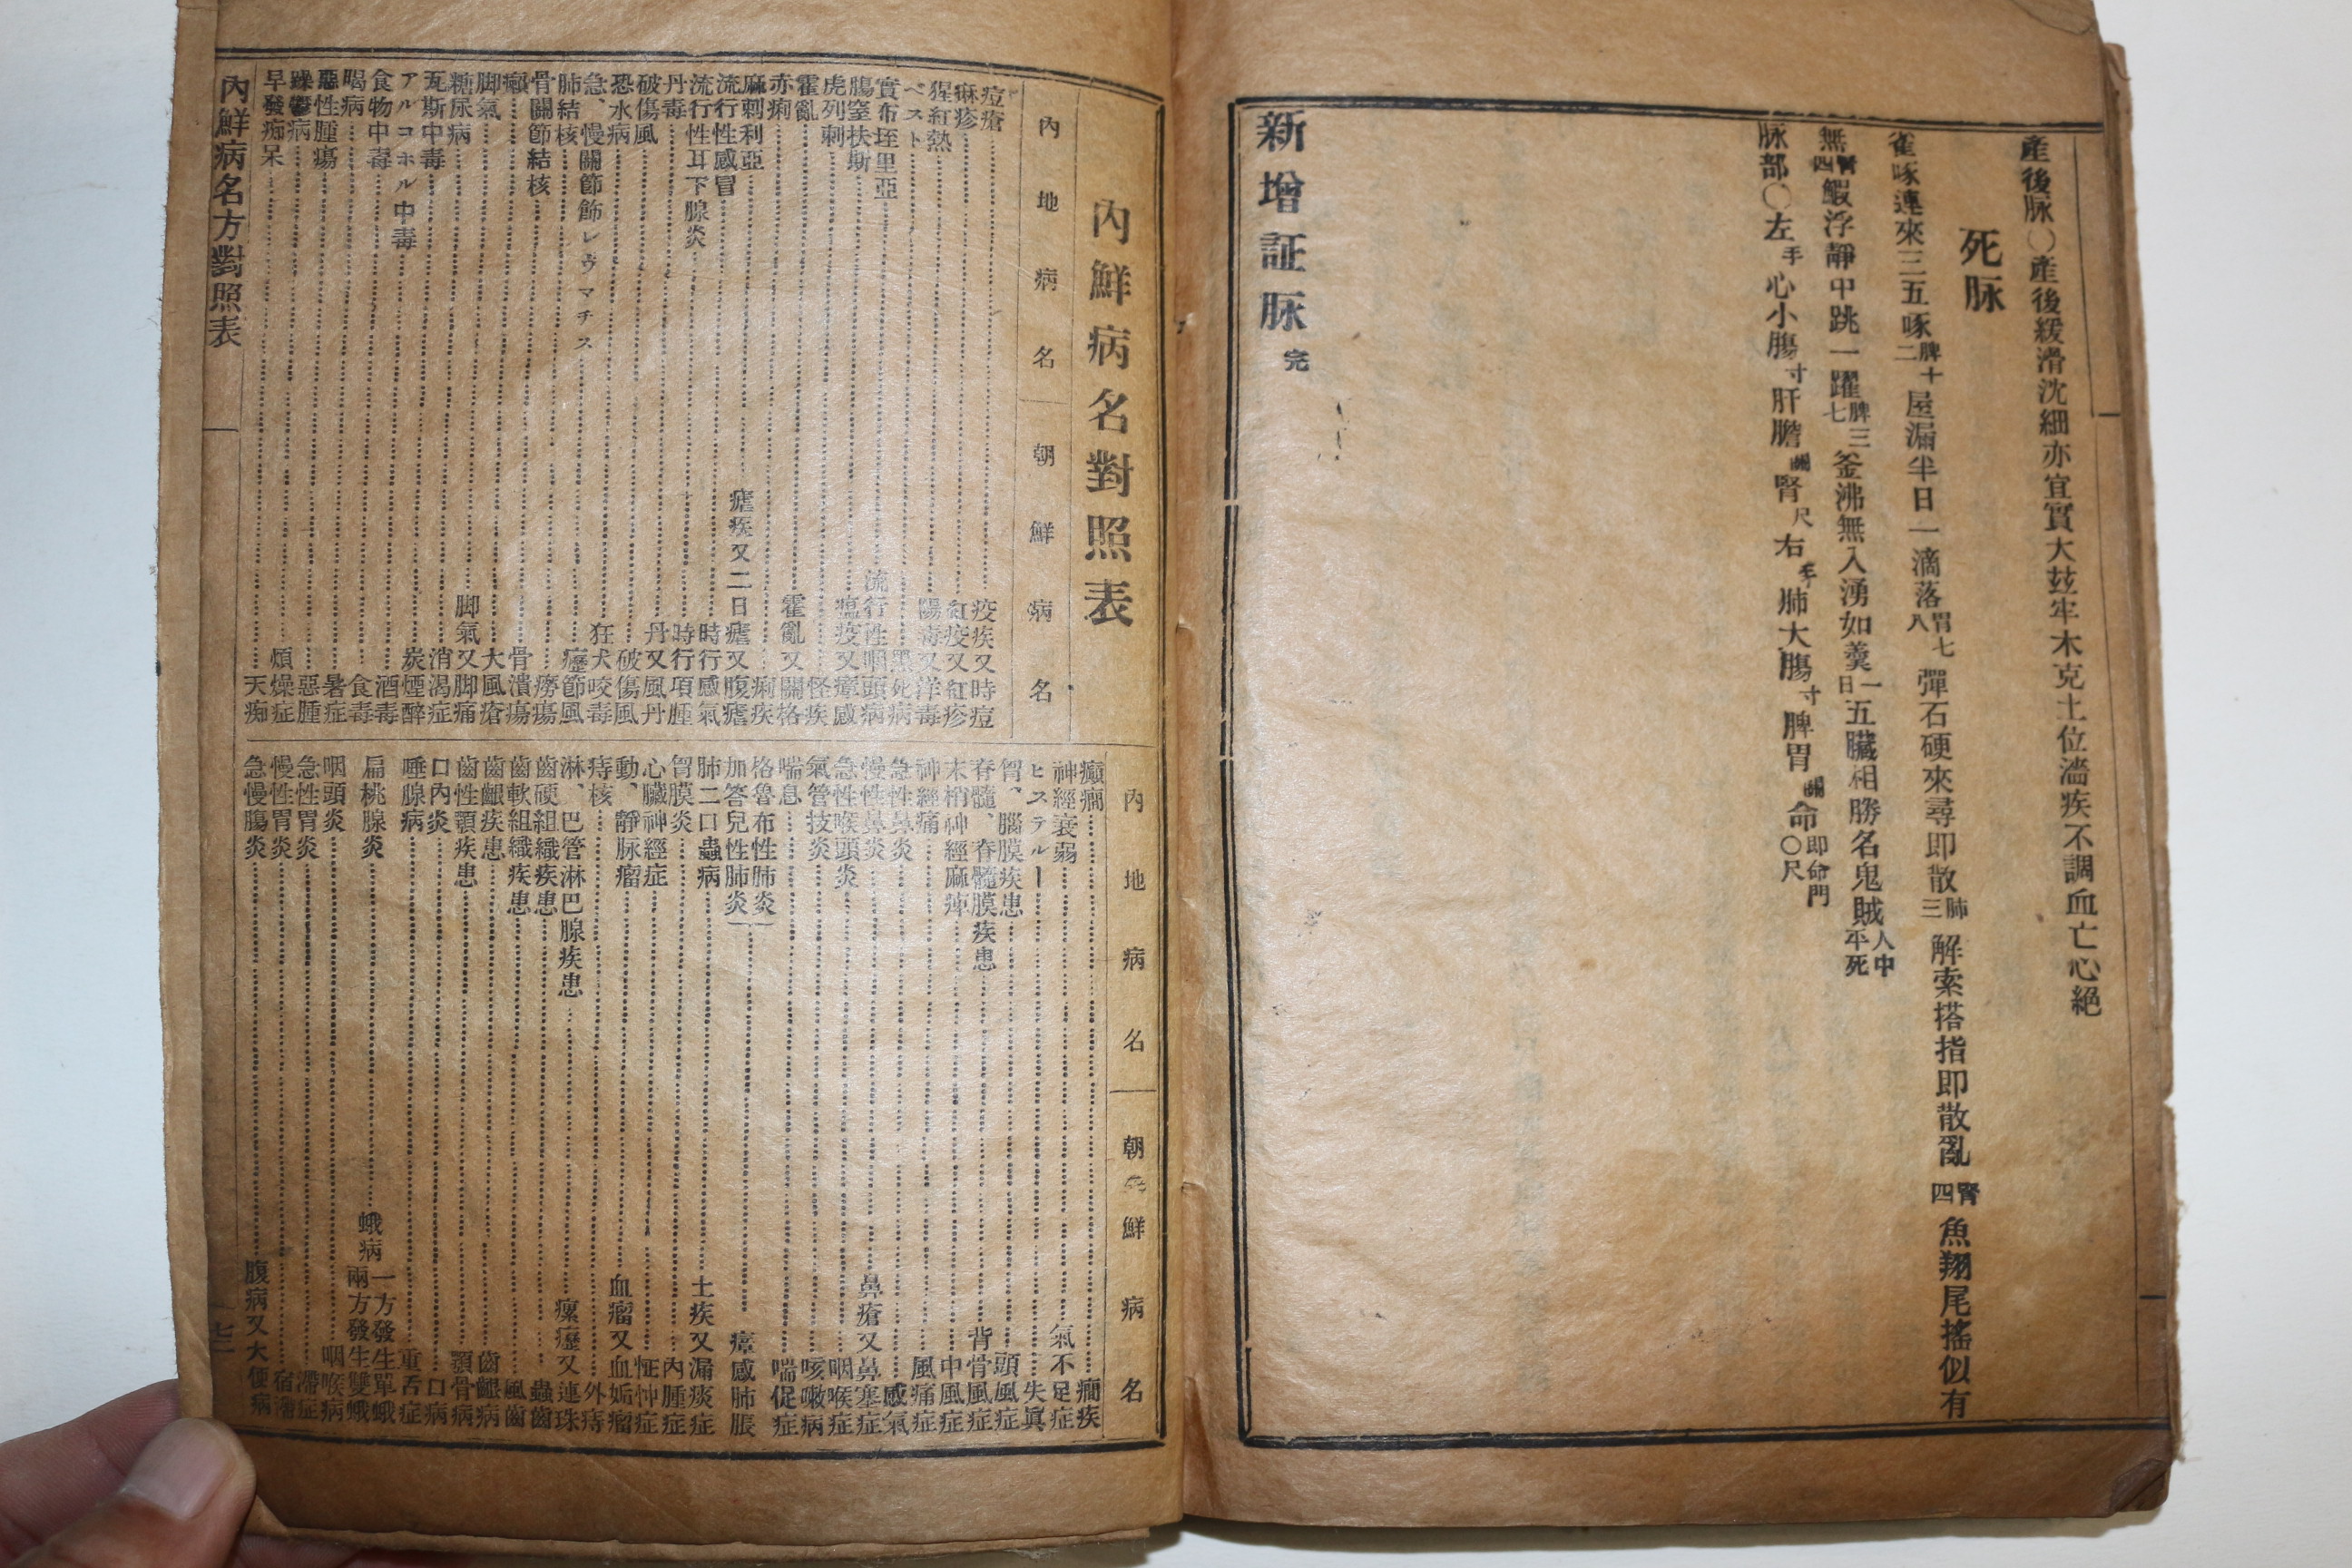 產後脉〇產後緩滑沈細亦宜實大玆牢木克土位濇疾不調血亡心絕
死脉
雀啄連來三五啄脾十二屋漏半日一滴落胃七八彈石硬來尋即散肺三解索搭指即散亂腎四魚翔尾搖似有
無腎四鰕浮靜中跳一躍脾三七釜沸無入湧如羹一日五臟相勝名鬼賊人中平死
脉部〇左手心小膓寸肝膽關腎尺右手肺大膓寸脾胃關命即命門〇尺
新增証脉 完
內鮮病名對照表
內地病名 朝鮮病名
痘瘡 疫疾又時痘
麻疹 紅疫又紅疹
猩紅熱 陽毒又洋毒
ペスト 黑死病
實布垤里亞 流行性咽頭病
膓窒扶斯 瘟疫又瘴感
虎列剌 怪疾
霍亂 霍亂又關格
赤痢 痢疾
麻剌利亞 瘧疾又二日瘧又腹瘧
流行性感冒 時行感氣
流行性耳下腺炎 時行項腫
丹毒 丹又風丹
破傷風 破傷風
恐水病 狂犬咬毒
急、慢關節飾レウマチス 癧節風
肺結核 癆瘍
骨關節結核 骨潰瘍
癩 大風瘡
脚氣 脚氣又脚痛
糖尿病 消渴症
瓦斯中毒 炭煙醉
アルコホル中毒 酒毒
食物中毒 食毒
暍病 暑症
惡性腫瘍 惡腫
躁鬱病 煩燥症
早發痴呆 天痴
內地病名 朝鮮病名
癲癇 癎疾
神經衰弱 氣不足症
ヒステルー 失眞
胷、腦膜疾患 頭風症
脊髓、脊髓膜疾患 背骨風症
末梢神經麻痺 中風症
神經痛 風痛症
急性鼻炎 感氣
慢性鼻炎 鼻瘡又鼻塞症
急性喉頭炎 咽喉症
氣管技炎 咳嗽病
喘息 喘促症
格魯布性肺炎
加答兒性肺炎 瘴感肺脹
肺二口蟲病 土疾又漏痰症
胷膜炎 內腫症
心臟神經症 怔忡症
動、靜脉瘤 血瘤又血垢瘤
痔核 外痔
淋、巴管淋巴腺疾患 瘰癧又連珠
齒硬組織疾患 蟲齒
齒軟組織疾患 風齒
齒齦疾患 齒齦病
齒性顎疾患 顎骨病
口內炎 口病
唾腺病 重舌症
扁桃腺炎 蛾病 一方發生單蛾 兩方發生雙蛾
咽頭炎 咽喉病
急性胃炎 滯症
慢性胃炎 宿滯
急慢膓炎 腹病又大便病
內鮮病名方對照表